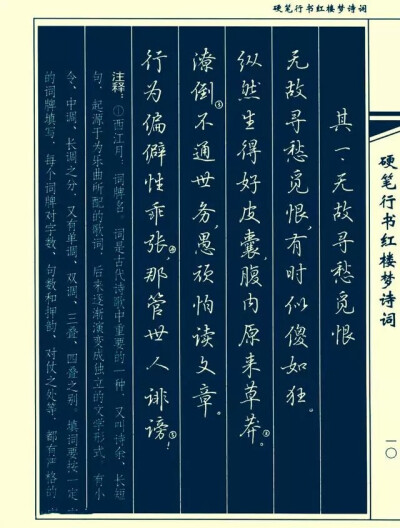 硬笔行书红楼梦诗词
硬笔行书红楼梦诗词
一〇
其一·无故寻愁觅恨
无故寻愁觅恨,有时似傻如狂。
纵然生得好皮囊,腹内原来草莽②。
潦倒③不通世务,愚顽怕读文章。
行为偏僻性乖张④,那管世人诽谤⑤!
注释:①西江月:词牌名。词是古代诗歌中重要的一种,又叫诗余、长短
句,起源于为乐曲所配的歌词,后来逐渐演变成独立的文学形式。有小
令、中调、长调之分,又有单调、双调、三叠、四叠之别。填词要按一定
的词牌填写,每个词牌对字数、句数和押韵、对仗之处等,都有严格的